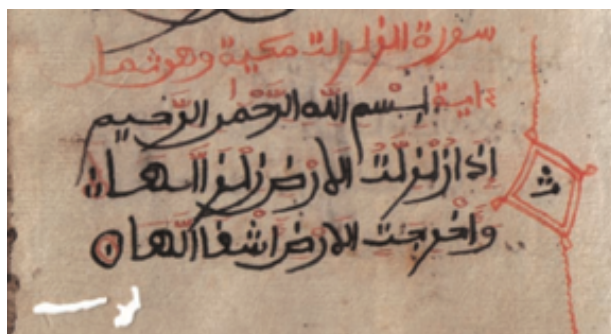 سورة الزلزلت مكية وهو ثمان
ءاية بسم الله الرحمن الرحيم
اذا زلزلت الارض زلزالها
واخرجت الارض اثقالها
ث